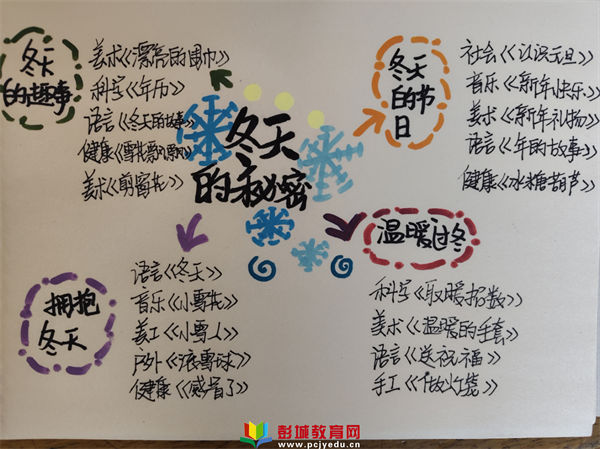 冬天
的秘密
冬天
的趣事
美术《漂亮的围巾》
科学《年历》
语言《冬天的故事》
健康《雪花飘飘》
美术《剪窗花》
冬天
的节
日
社会《认识元旦》
音乐《新年快乐》
美术《新年礼物》
语言《年的故事》
健康《冰糖葫芦》
拥抱
冬天
语言《冬天》
音乐《小雪花》
美工《小雪人》
户外《滚雪球》
健康《感冒了》
温暖过冬
科学《取暖招数》
美术《温暖的手套》
语言《送祝福》
手工《做火笼》
彭城教育网
www.pcjyedu.cn